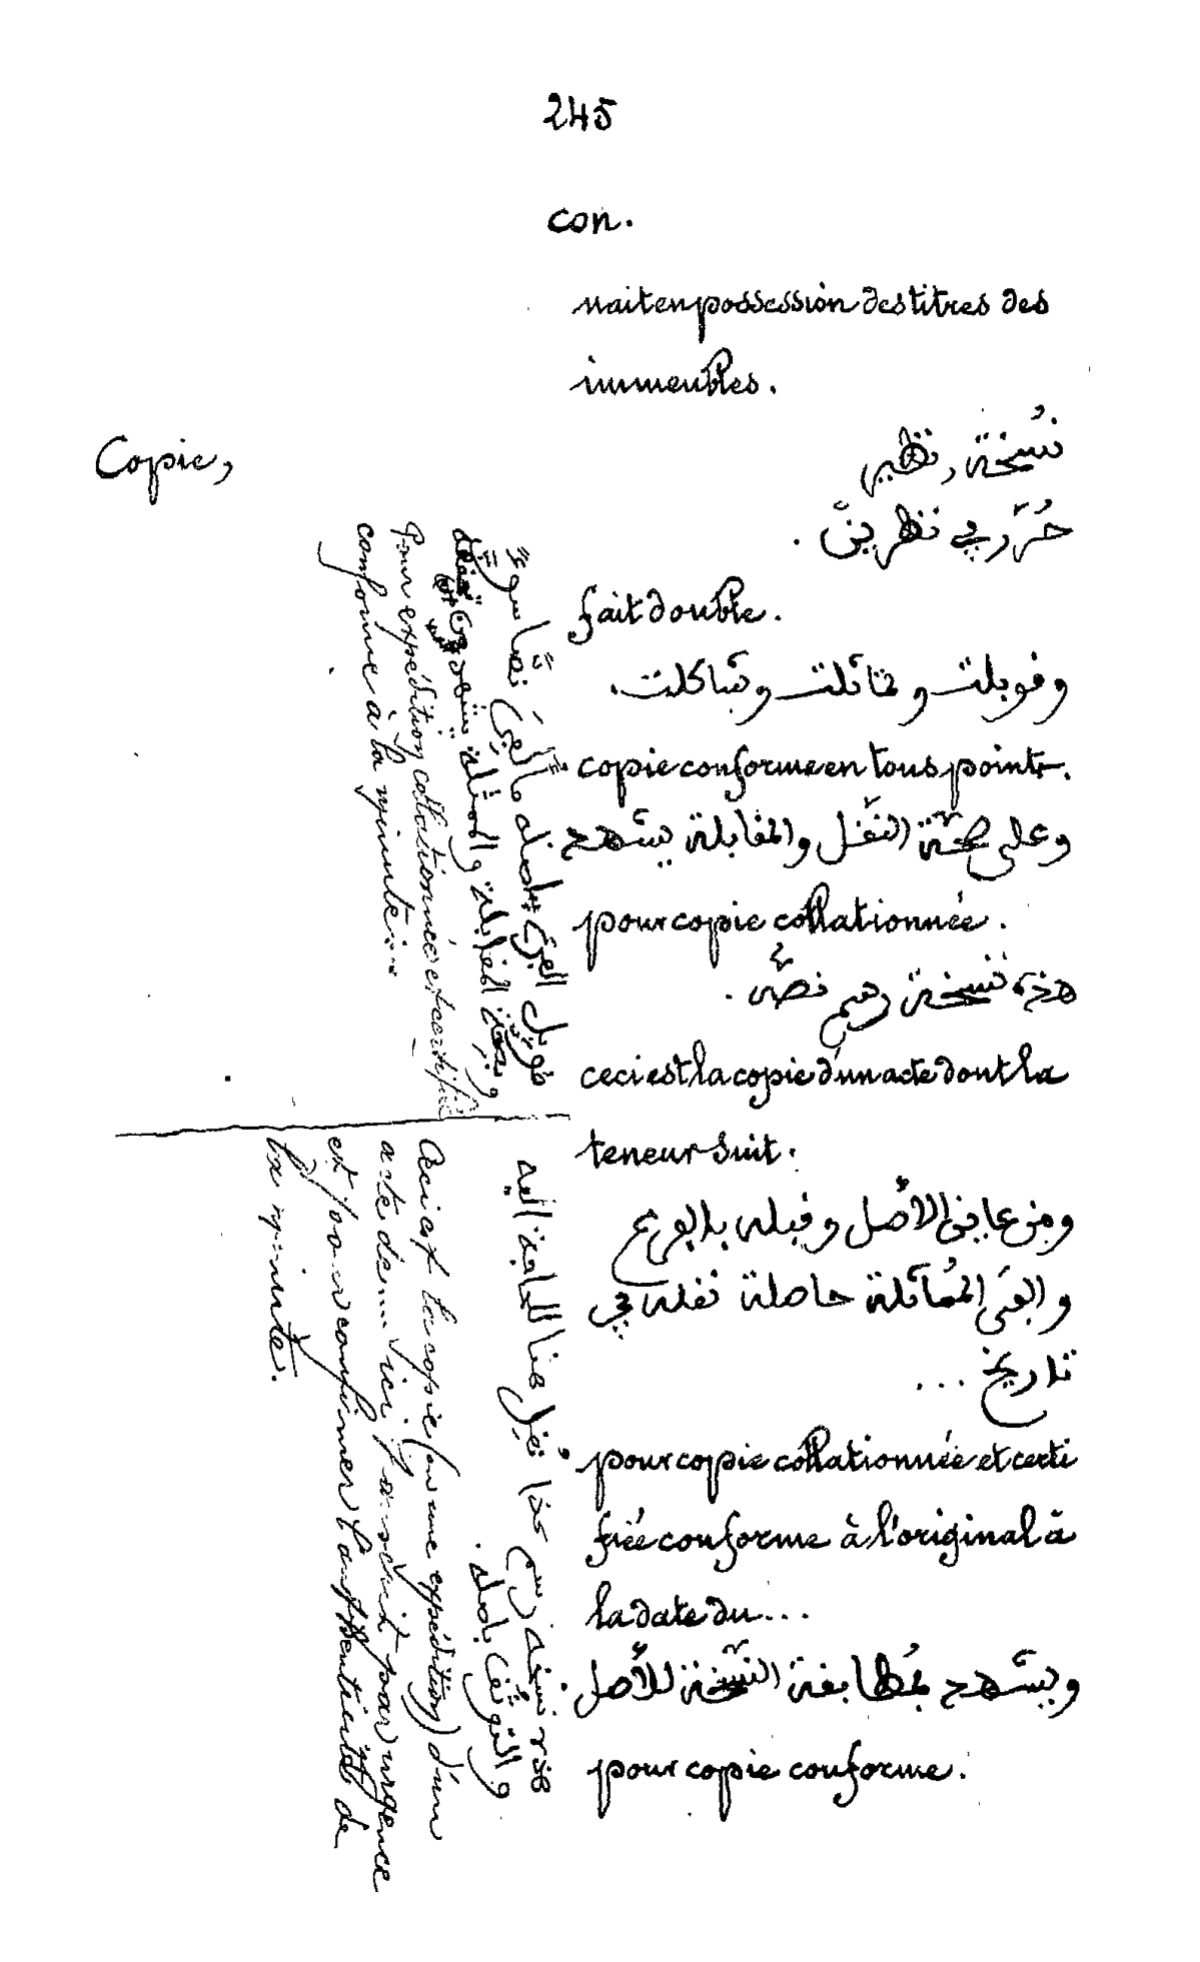 245
con.
nait en possession des titres des
immeubles.
Copie,
نُسْخة، نظير
حُرّر في نظيرين.
fait double.
وقوبلت وتماثلت وتشاكلت.
copie conforme en tous points.
وعلى صحّة النّقل والمقابلة يشهد
pour copie collationnée.
هذه نسخة رسم نصّه.
ceci est la copie d'un acte dont la
teneur suit.
ومن عاين الأصل وقبله بالفرع
والفى المُماثلة حاصلة نقله في
تاريخ ...
pour copie collationnée et certi
fiée conforme à l'original à
la date du ...
ويشهد بمُطابقة النّسخة للأصل.
pour copie conforme.
قوبل الفرع بأصله فألفي نصّا سوى
وبصحّة المقابلة والمماثلة يشهد
Pour expédition collationnée et certifiée
conforme à la minute.
هذه نسخة رسم هذا نقل هنا للحاجة إليه
والتوثّق بأصله.
Ceci est la copie (ou une expédition) d'un
acte ici transcrit par urgence
et pour confirmer l'authenticité de
la minute.